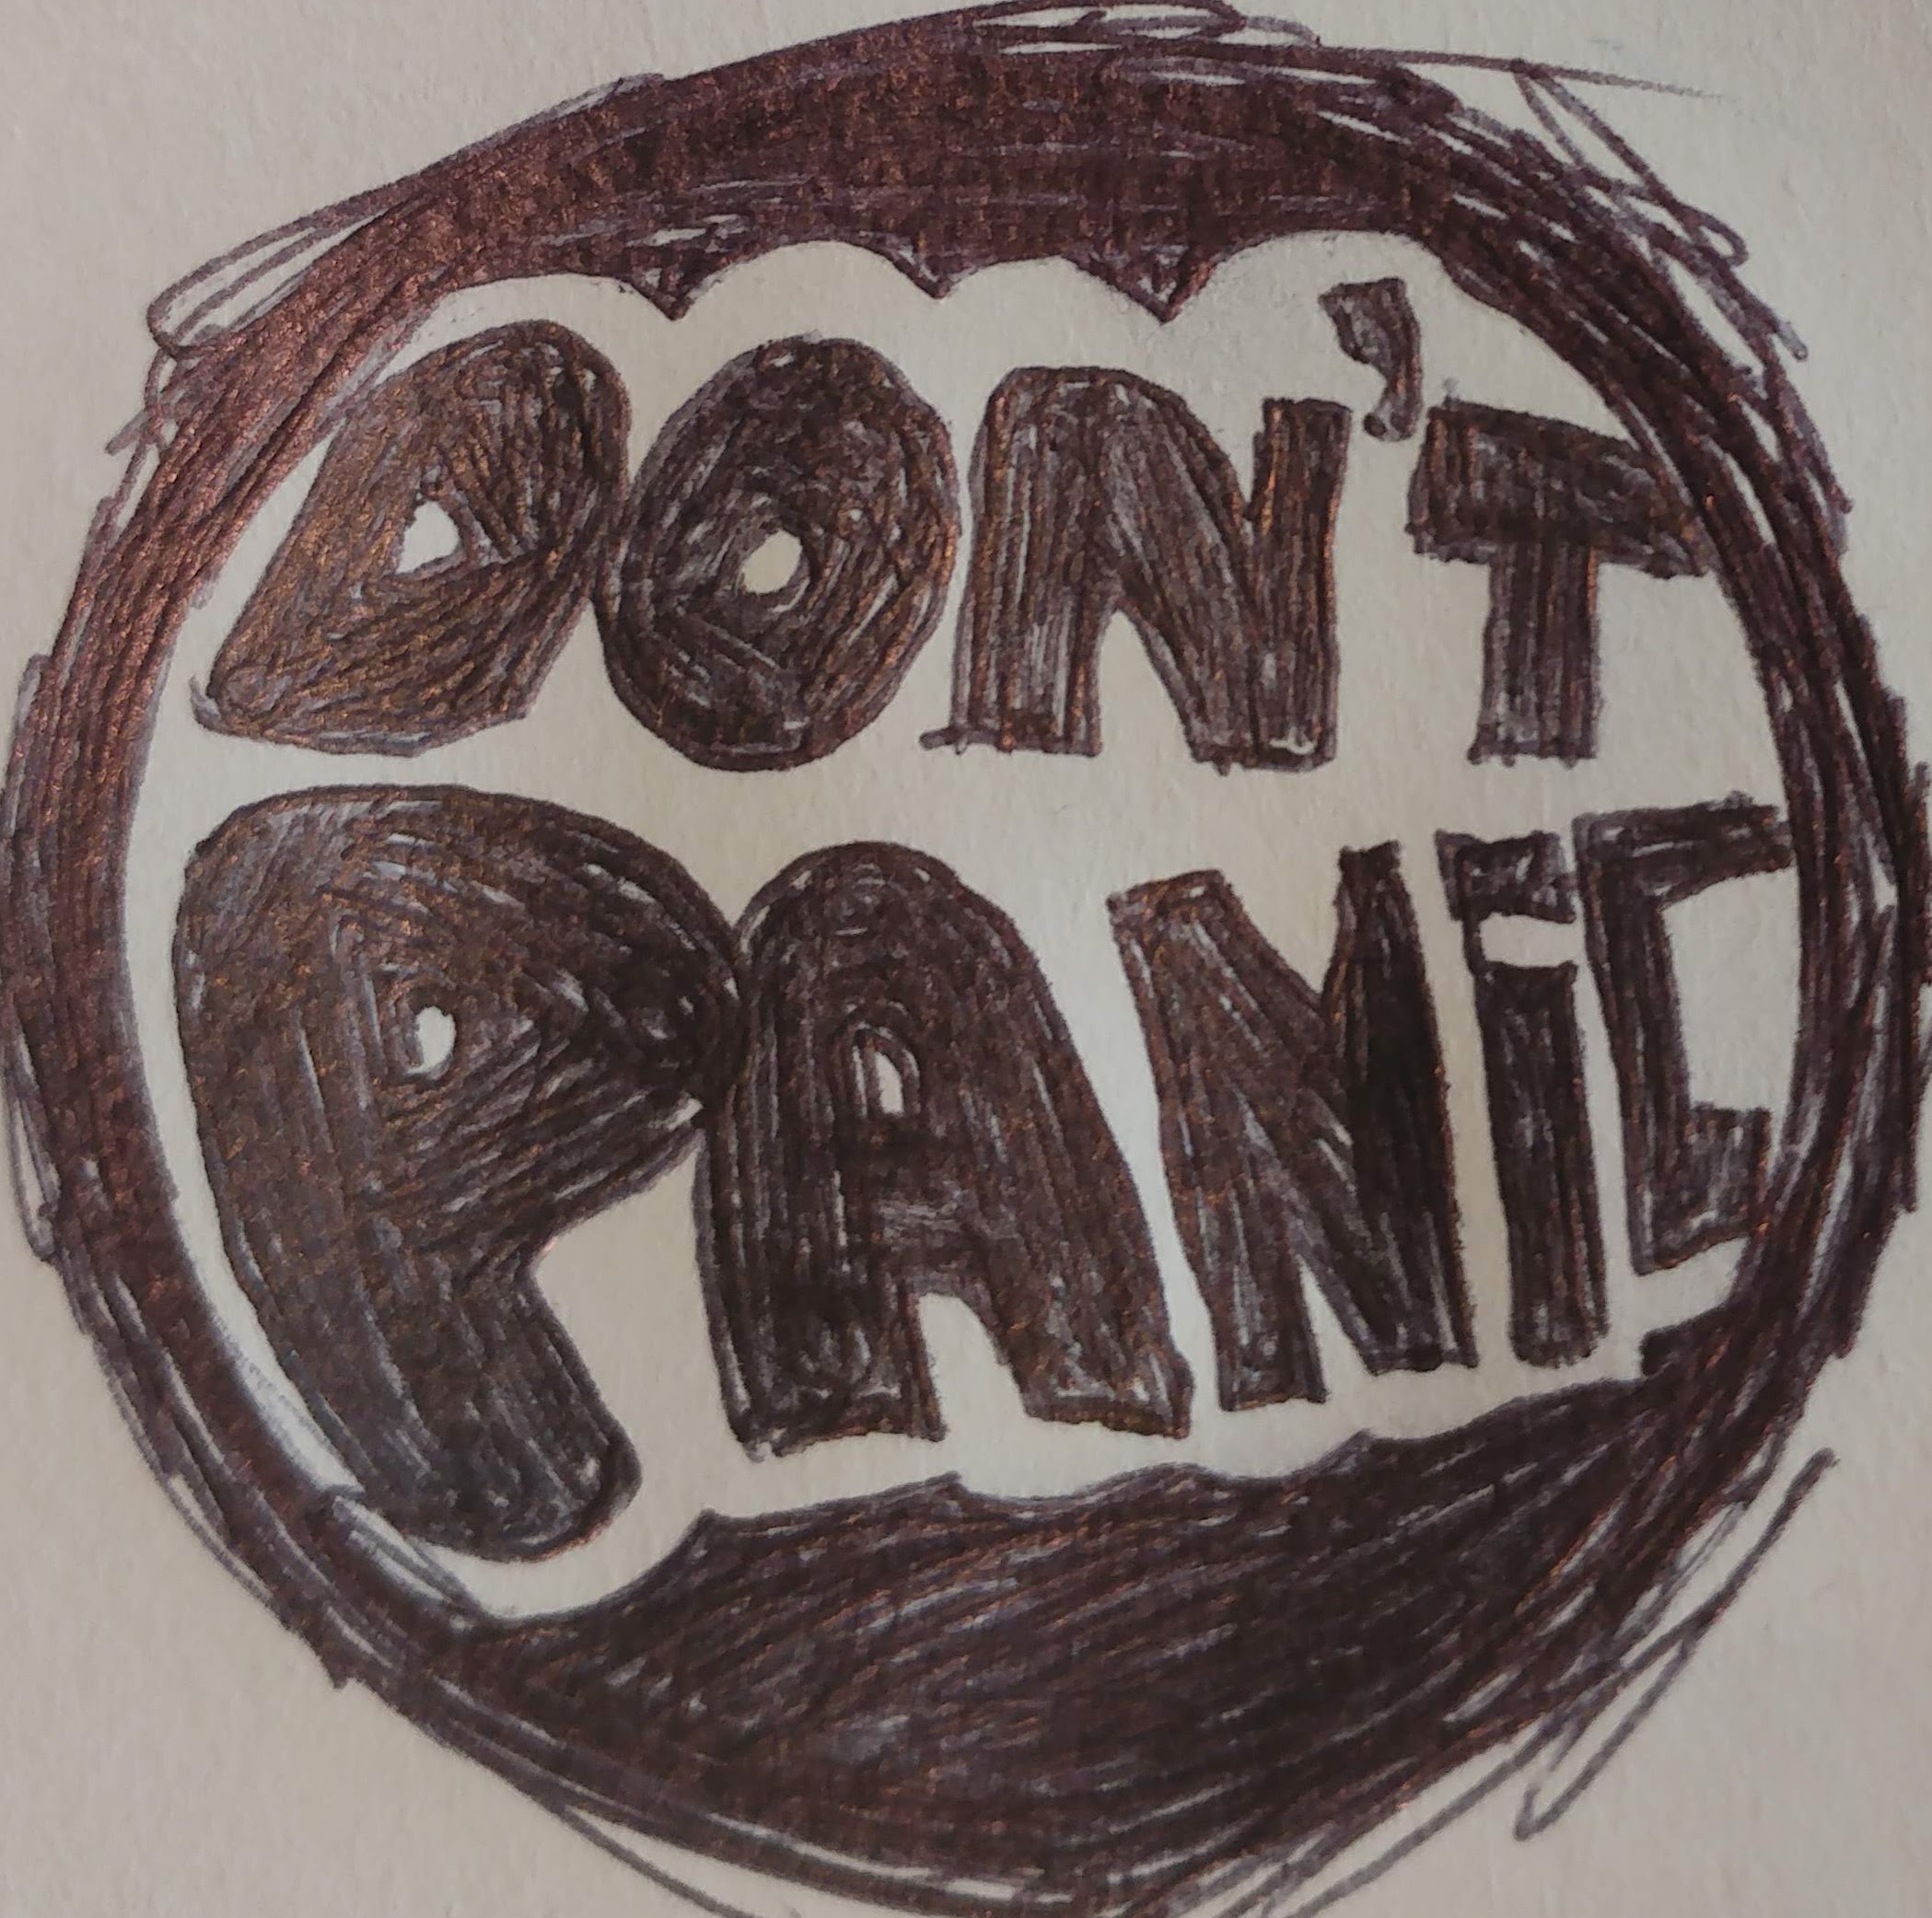 DON'T
PANiC